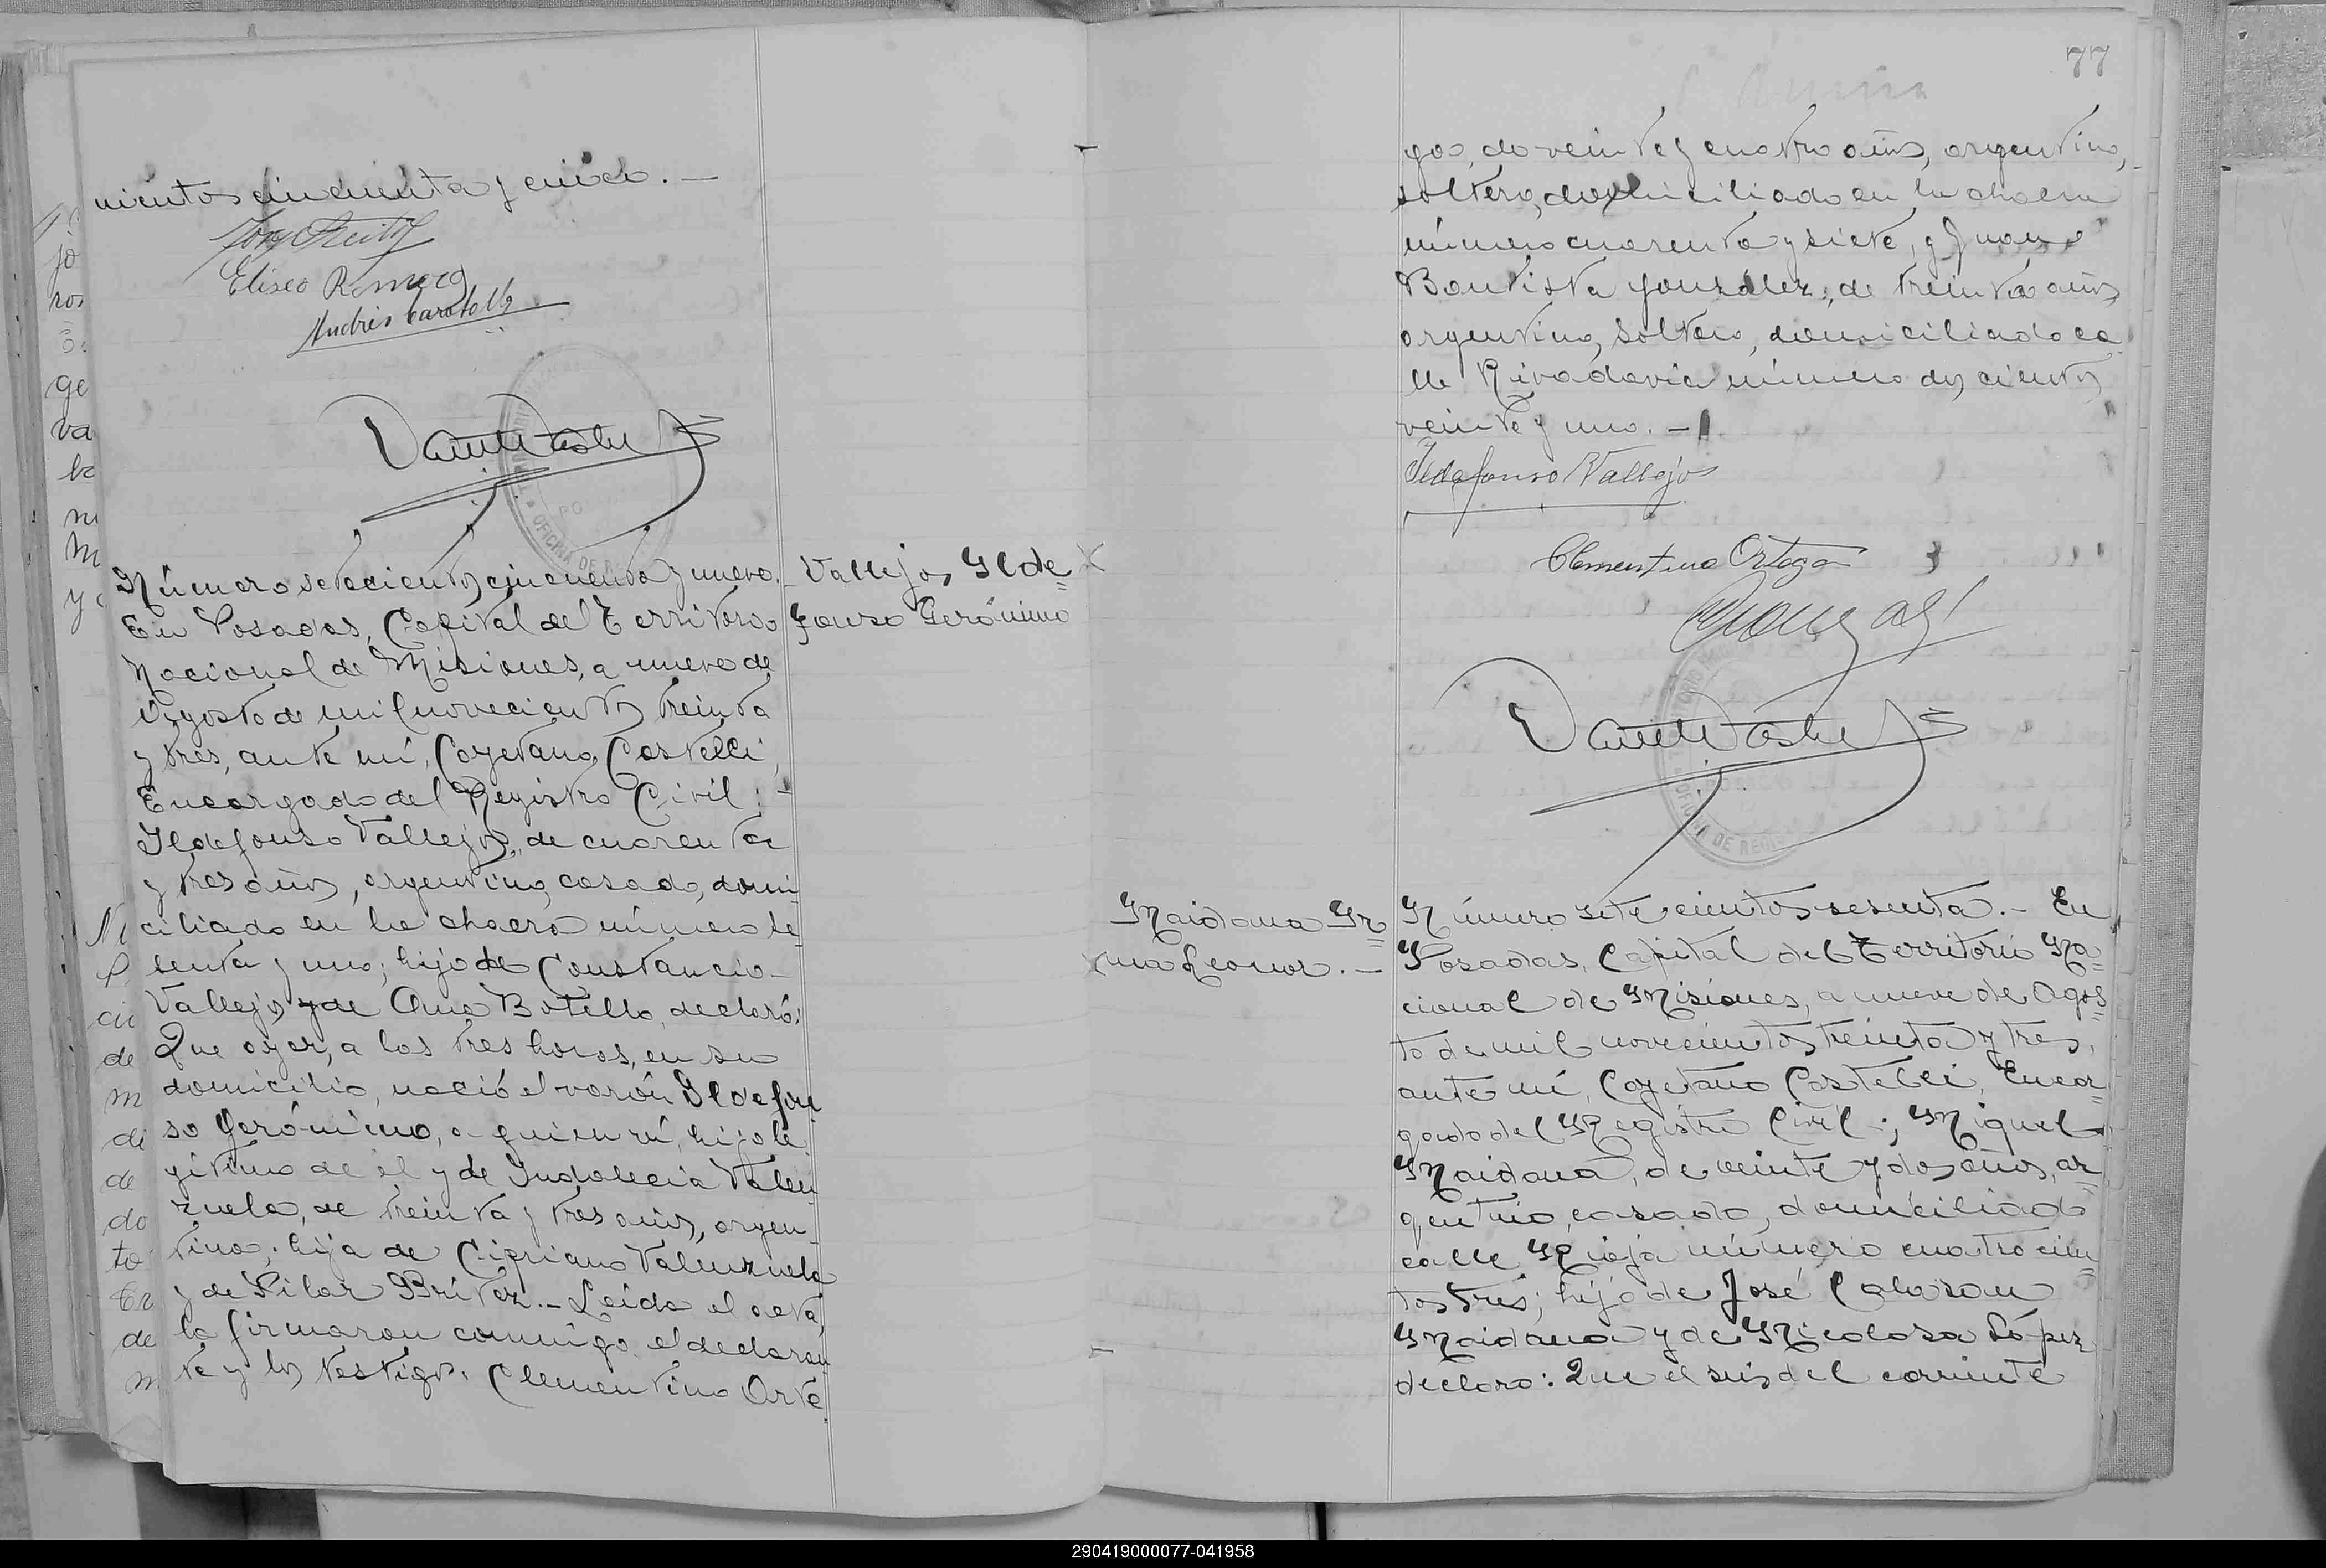 nientos cincuenta y cinco. —
Eliseo Romero
Andrés
Número setecientos cincuenta y nueve.
Vallejos Ilde=
En Posadas, Capital del Territorio
fonso Gerónimo
Nacional de Misiones, a nueve de
Agosto de mil novecientos treinta
y tres, ante mí, Cayetano Castelli,
Encargado del Registro Civil; -
Ildefonso Vallejos, de cuarenta
y tres años, argentino, casado, domi-
ciliado en la chacra número se-
senta y uno; hijo de Constancio
Vallejos y de Ana Botello, declaró:
Que ayer, a las tres horas, en su
domicilio, nació el varón Ildefon
so Gerónimo, a quien ví, hijo le
gítimo de él y de Indalecia Valen
zuela, de treinta y tres años, argen-
tina; hija de Cipriano Valenzuela
y de Pilar Brítez. — Leída el acta,
la firmaron conmigo el declaran
te y los testigos: Clementino Orte
77
gas, de veinte y cuatro años, argentino,
soltero, domiciliado en la chacra
número cuarenta y siete, y Juan
Bautista González, de treinta años,
argentino, soltero, domiciliado ca
lle Rivadavia número dos cientos
veinte y uno. —
Ildefonso Vallejos
Clementino Ortega
Maidana Ir=
ma Leonor. —
Número setecientos sesenta. - En
Posadas, Capital del Territorio Na=
cional de Misiones, a nueve de Agos=
to de mil novecientos treinta y tres,
ante mí, Cayetano Castelli, Encar=
gado del Registro Civil; Miguel
Maidana, de veinte y dos años, ar=
gentino, casado, domiciliado
calle Rioja número cuatrocien=
tos tres; hijo de José Calasan
Maidana y de Nicolasa López
declaro: Que el seis del corriente
290419000077-041958